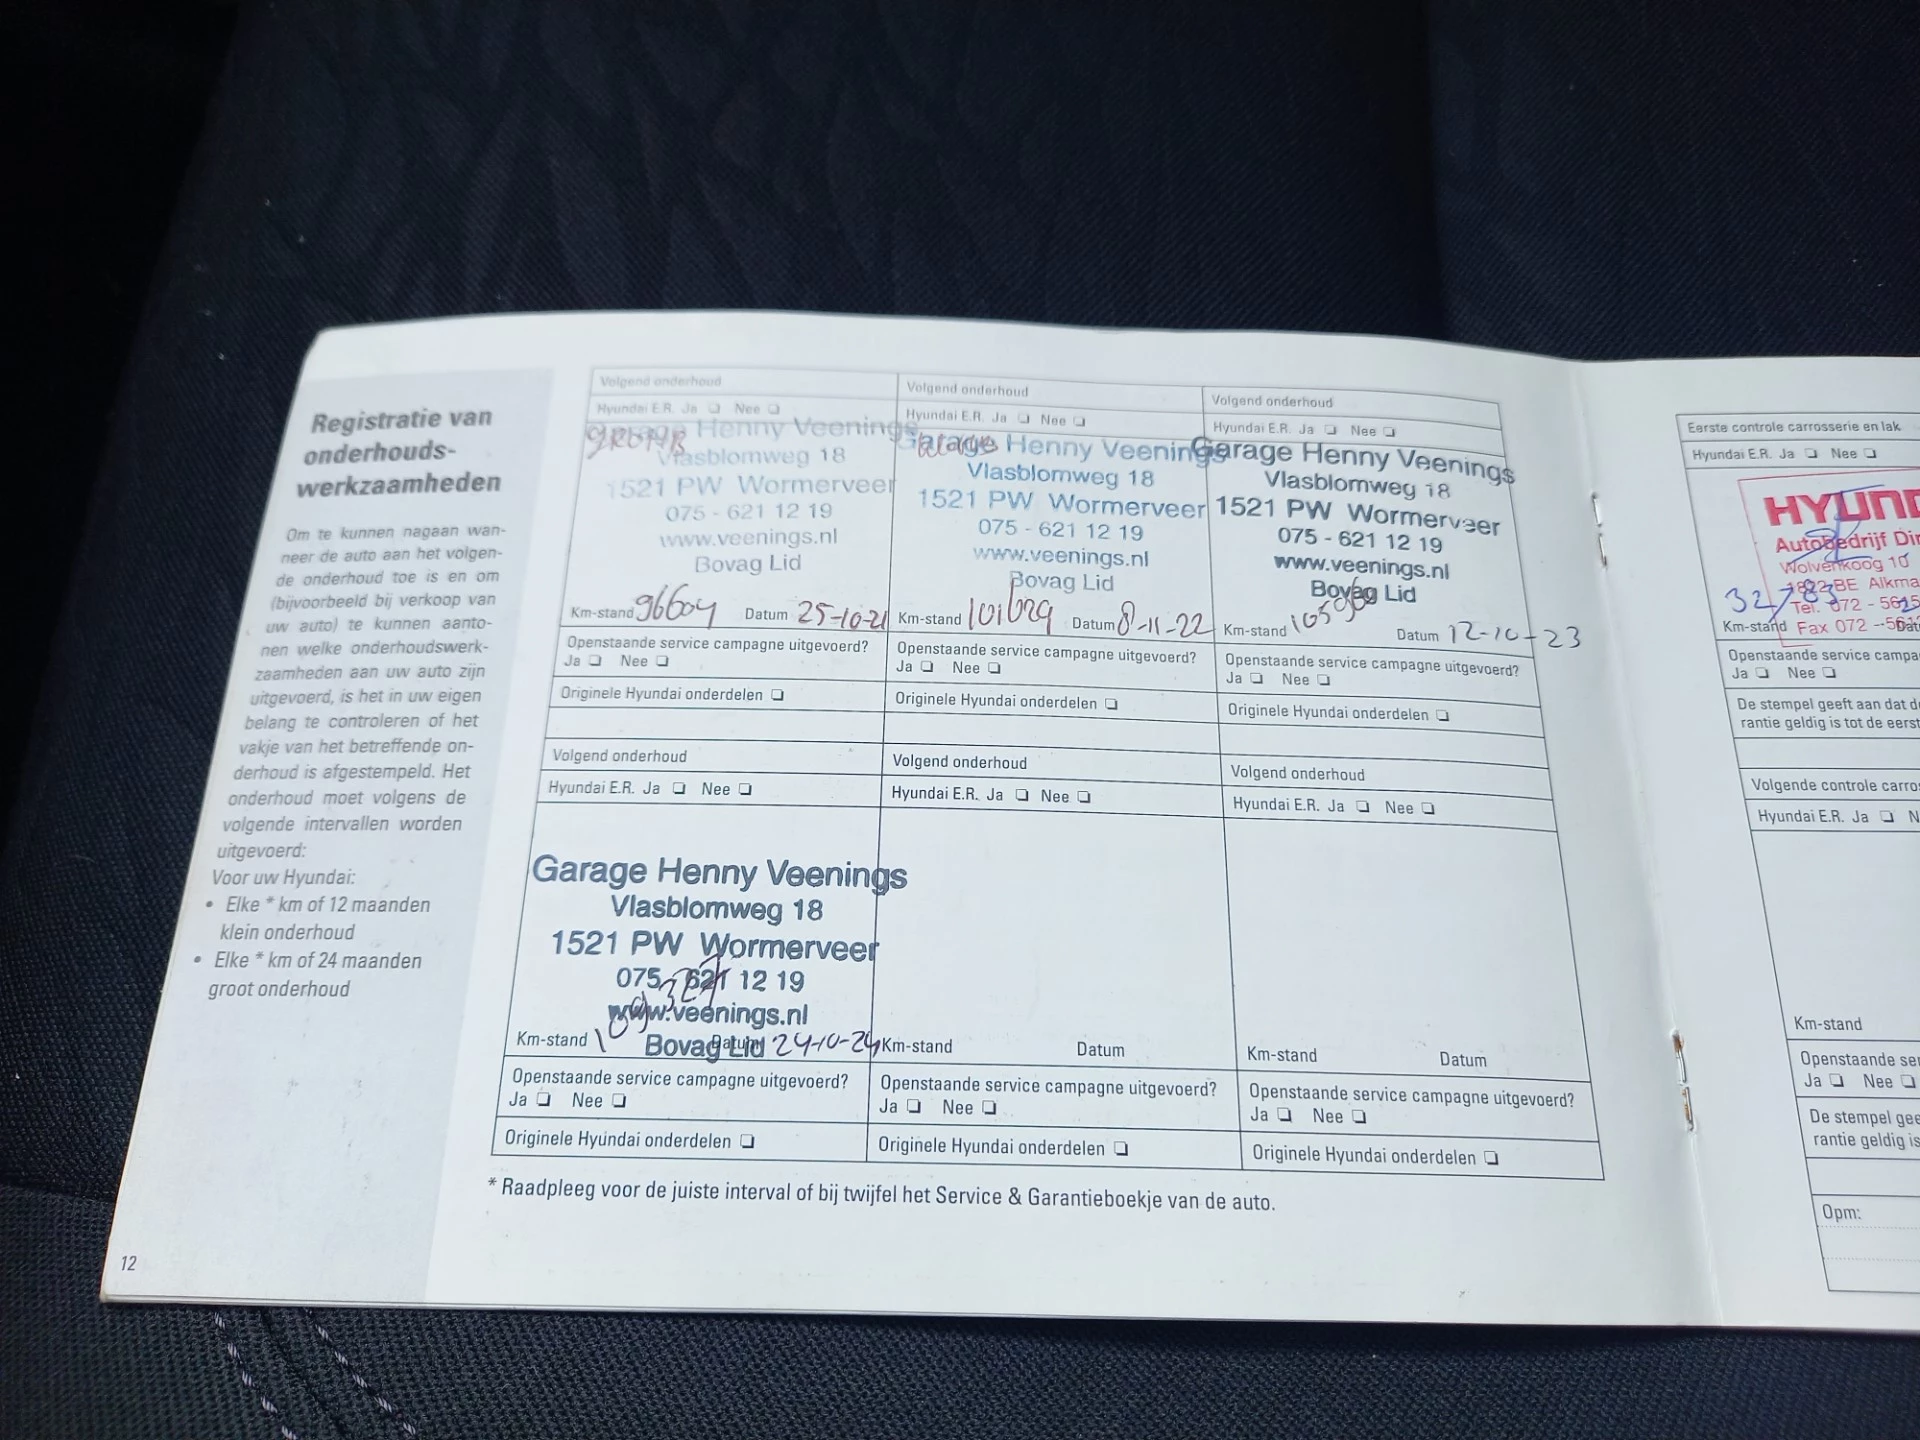 Registratie van
onderhouds-
werkzaamheden
Om te kunnen nagaan wan-
neer de auto aan het volgen-
de onderhoud toe is en om
(bijvoorbeeld bij verkoop van
uw auto) te kunnen aanto-
nen welke onderhoudswerk-
zaamheden aan uw auto zijn
uitgevoerd, is het in uw eigen
belang te controleren of het
vakje van het betreffende on-
derhoud is afgestempeld. Het
onderhoud moet volgens de
volgende intervallen worden
uitgevoerd:
Voor uw Hyundai:
• Elke * km of 12 maanden
klein onderhoud
• Elke * km of 24 maanden
groot onderhoud
12
Volgend onderhoud
Hyundai E.R. Ja ❏ Nee ❏
Garage Henny Veenings
Vlasblomweg 18
1521 PW Wormerveer
075 - 621 12 19
www.veenings.nl
Bovag Lid
Km-stand 96604 Datum 25-10-21
Openstaande service campagne uitgevoerd?
Ja ❏ Nee ❏
Originele Hyundai onderdelen ❏
Volgend onderhoud
Hyundai E.R. Ja ❏ Nee ❏
Garage Henny Veenings
Vlasblomweg 18
1521 PW Wormerveer
075 - 621 12 19
www.veenings.nl
Bovag Lid
Km-stand 101629 Datum 8-11-22
Openstaande service campagne uitgevoerd?
Ja ❏ Nee ❏
Originele Hyundai onderdelen ❏
Volgend onderhoud
Hyundai E.R. Ja ❏ Nee ❏
Garage Henny Veenings
Vlasblomweg 18
1521 PW Wormerveer
075 - 621 12 19
www.veenings.nl
Bovag Lid
Km-stand Datum 12-10-23
Openstaande service campagne uitgevoerd?
Ja ❏ Nee ❏
Originele Hyundai onderdelen ❏
Volgend onderhoud
Hyundai E.R. Ja ❏ Nee ❏
Garage Henny Veenings
Vlasblomweg 18
1521 PW Wormerveer
075 - 621 12 19
www.veenings.nl
Bovag Lid
Km-stand 109327 Datum 24-10-24
Openstaande service campagne uitgevoerd?
Ja ❏ Nee ❏
Originele Hyundai onderdelen ❏
Volgend onderhoud
Hyundai E.R. Ja ❏ Nee ❏
Km-stand Datum
Openstaande service campagne uitgevoerd?
Ja ❏ Nee ❏
Originele Hyundai onderdelen ❏
Volgend onderhoud
Hyundai E.R. Ja ❏ Nee ❏
Km-stand Datum
Openstaande service campagne uitgevoerd?
Ja ❏ Nee ❏
Originele Hyundai onderdelen ❏
* Raadpleeg voor de juiste interval of bij twijfel het Service & Garantieboekje van de auto.
Eerste controle carrosserie en lak
Hyundai E.R. Ja ❏ Nee ❏
HYUND
Autobedrijf Dir
Wolvenkoog 10
1822 BE Alkma
Tel. 072 - 5615
Fax 072 - 561
Km-stand Dat
Openstaande service campa
Ja ❏ Nee ❏
De stempel geeft aan dat d
rantie geldig is tot de eerst
Volgende controle carro
Hyundai E.R. Ja ❏ N
Km-stand
Openstaande se
Ja ❏ Nee ❏
De stempel gee
rantie geldig is
Opm: